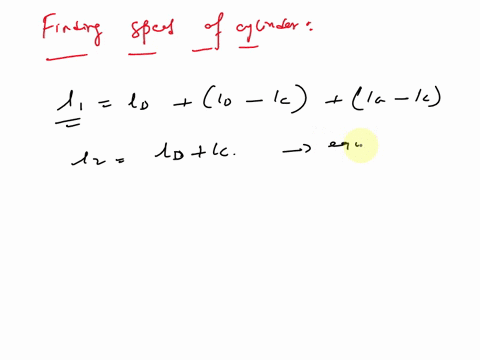 Finding speed of cylinder:
l₁ = lD + (lD - lC) + (lA - lC)
l₂ = lD + lC. → equ